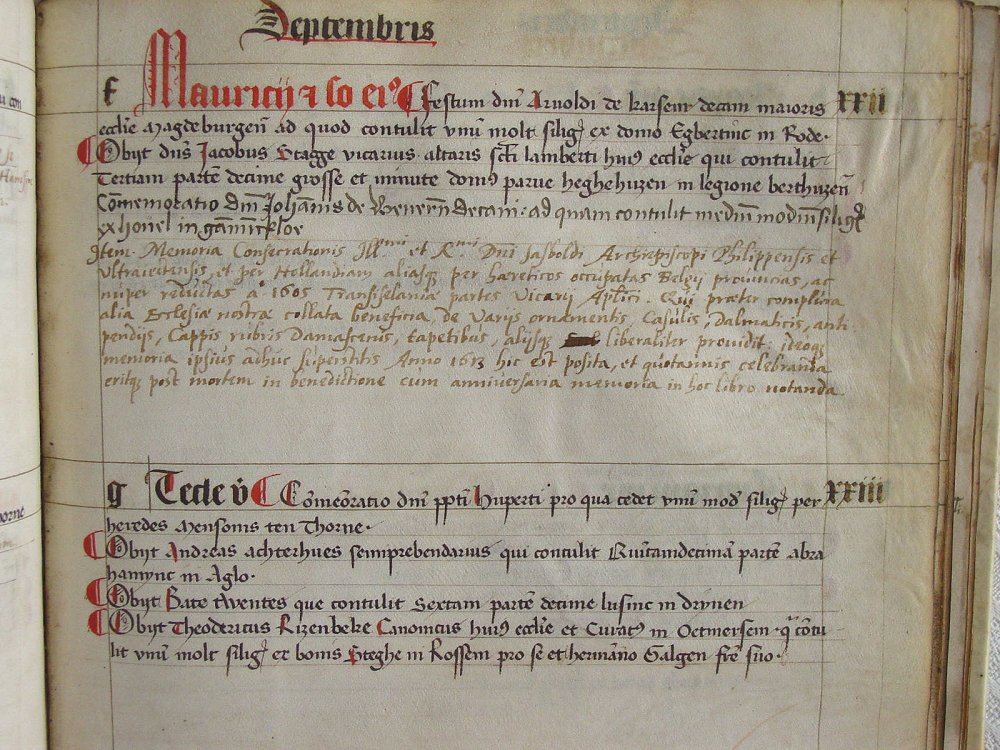 Septembris
f Mauricij ⁊ so eiꝰ Festum dnī Arnoldi de karsem decani maioris xxii
ecclīe Magdeburgeñ ad quod contulit vnū molt siliḡ ex domo Egbertinc in Rode.
Obijt dn̄s Jacobus Stagge vicarius altaris sct̄i lamberti huiꝰ ecclīe qui contulit
Tertiam partē decime grosse et minute domꝰ parue heghehuzen in legione berthuzen̄
Com̄emoratio dnī Joh̄annis de Decani. ad quam contulit mediū modiū siliḡ
Item Memoria Consecrationis Ill.mi et R.mi Dnī Sasboldi Archiepiscopi Philippensis et
Vltraiectensis, et per Hollandiam aliasq; per hæreticos occupatas Belgij prouincias, ac
nuper reductas aº 1605 Transiselaniæ partes Vicarij Apl̄ici. Qui præter complura
alia Ecclesiæ nostræ collata beneficia, de varijs ornamentis, Casulis, Dalmaticis, anti
pendijs, Cappis rubris Damascenis, tapetibus, alijsq; liberaliter prouidit: ideoq;
memoria ipsius adhuc superstitis Anno 1613 hic est posita, et quotannis celebranda
eritq; post mortem in benedictione cum anniuersaria memoria in hoc libro notanda
g Tecle v̄ Com̄eoratio dnī pp̄ti Huperti pro qua cedet vnū mod̄ siliḡ per xxiii
heredes Mensonis ten Thorne.
Obijt Andreas achterhues semiprebendarius qui contulit Quītamdecimā partē abra
hamync in Aglo.
Obijt Bate twentes que contulit Sextam partē decime lusinc in drynen
Obijt Theodericus Rizenbeke Canonicus huiꝰ ecclīe et Curatꝰ in Oetmersem. q̄ cōtu
lit vnū molt siliḡ ex bonis Steghe in Rossem pro se et hermāno Galgen frē suo.